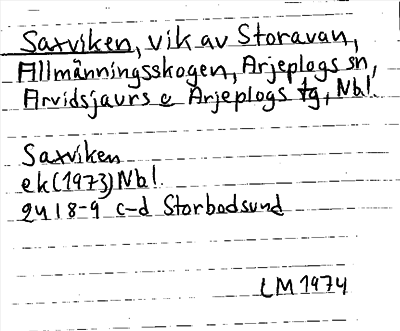 Saxviken, vik av Storavan,
Allmänningsskogen, Arjeplogs sn,
Arvidsjaurs o Arjeplogs tg, Nbl.
Saxviken
ek(1973)Nbl.
24I 8-9 c-d Storbodsund
LM1974